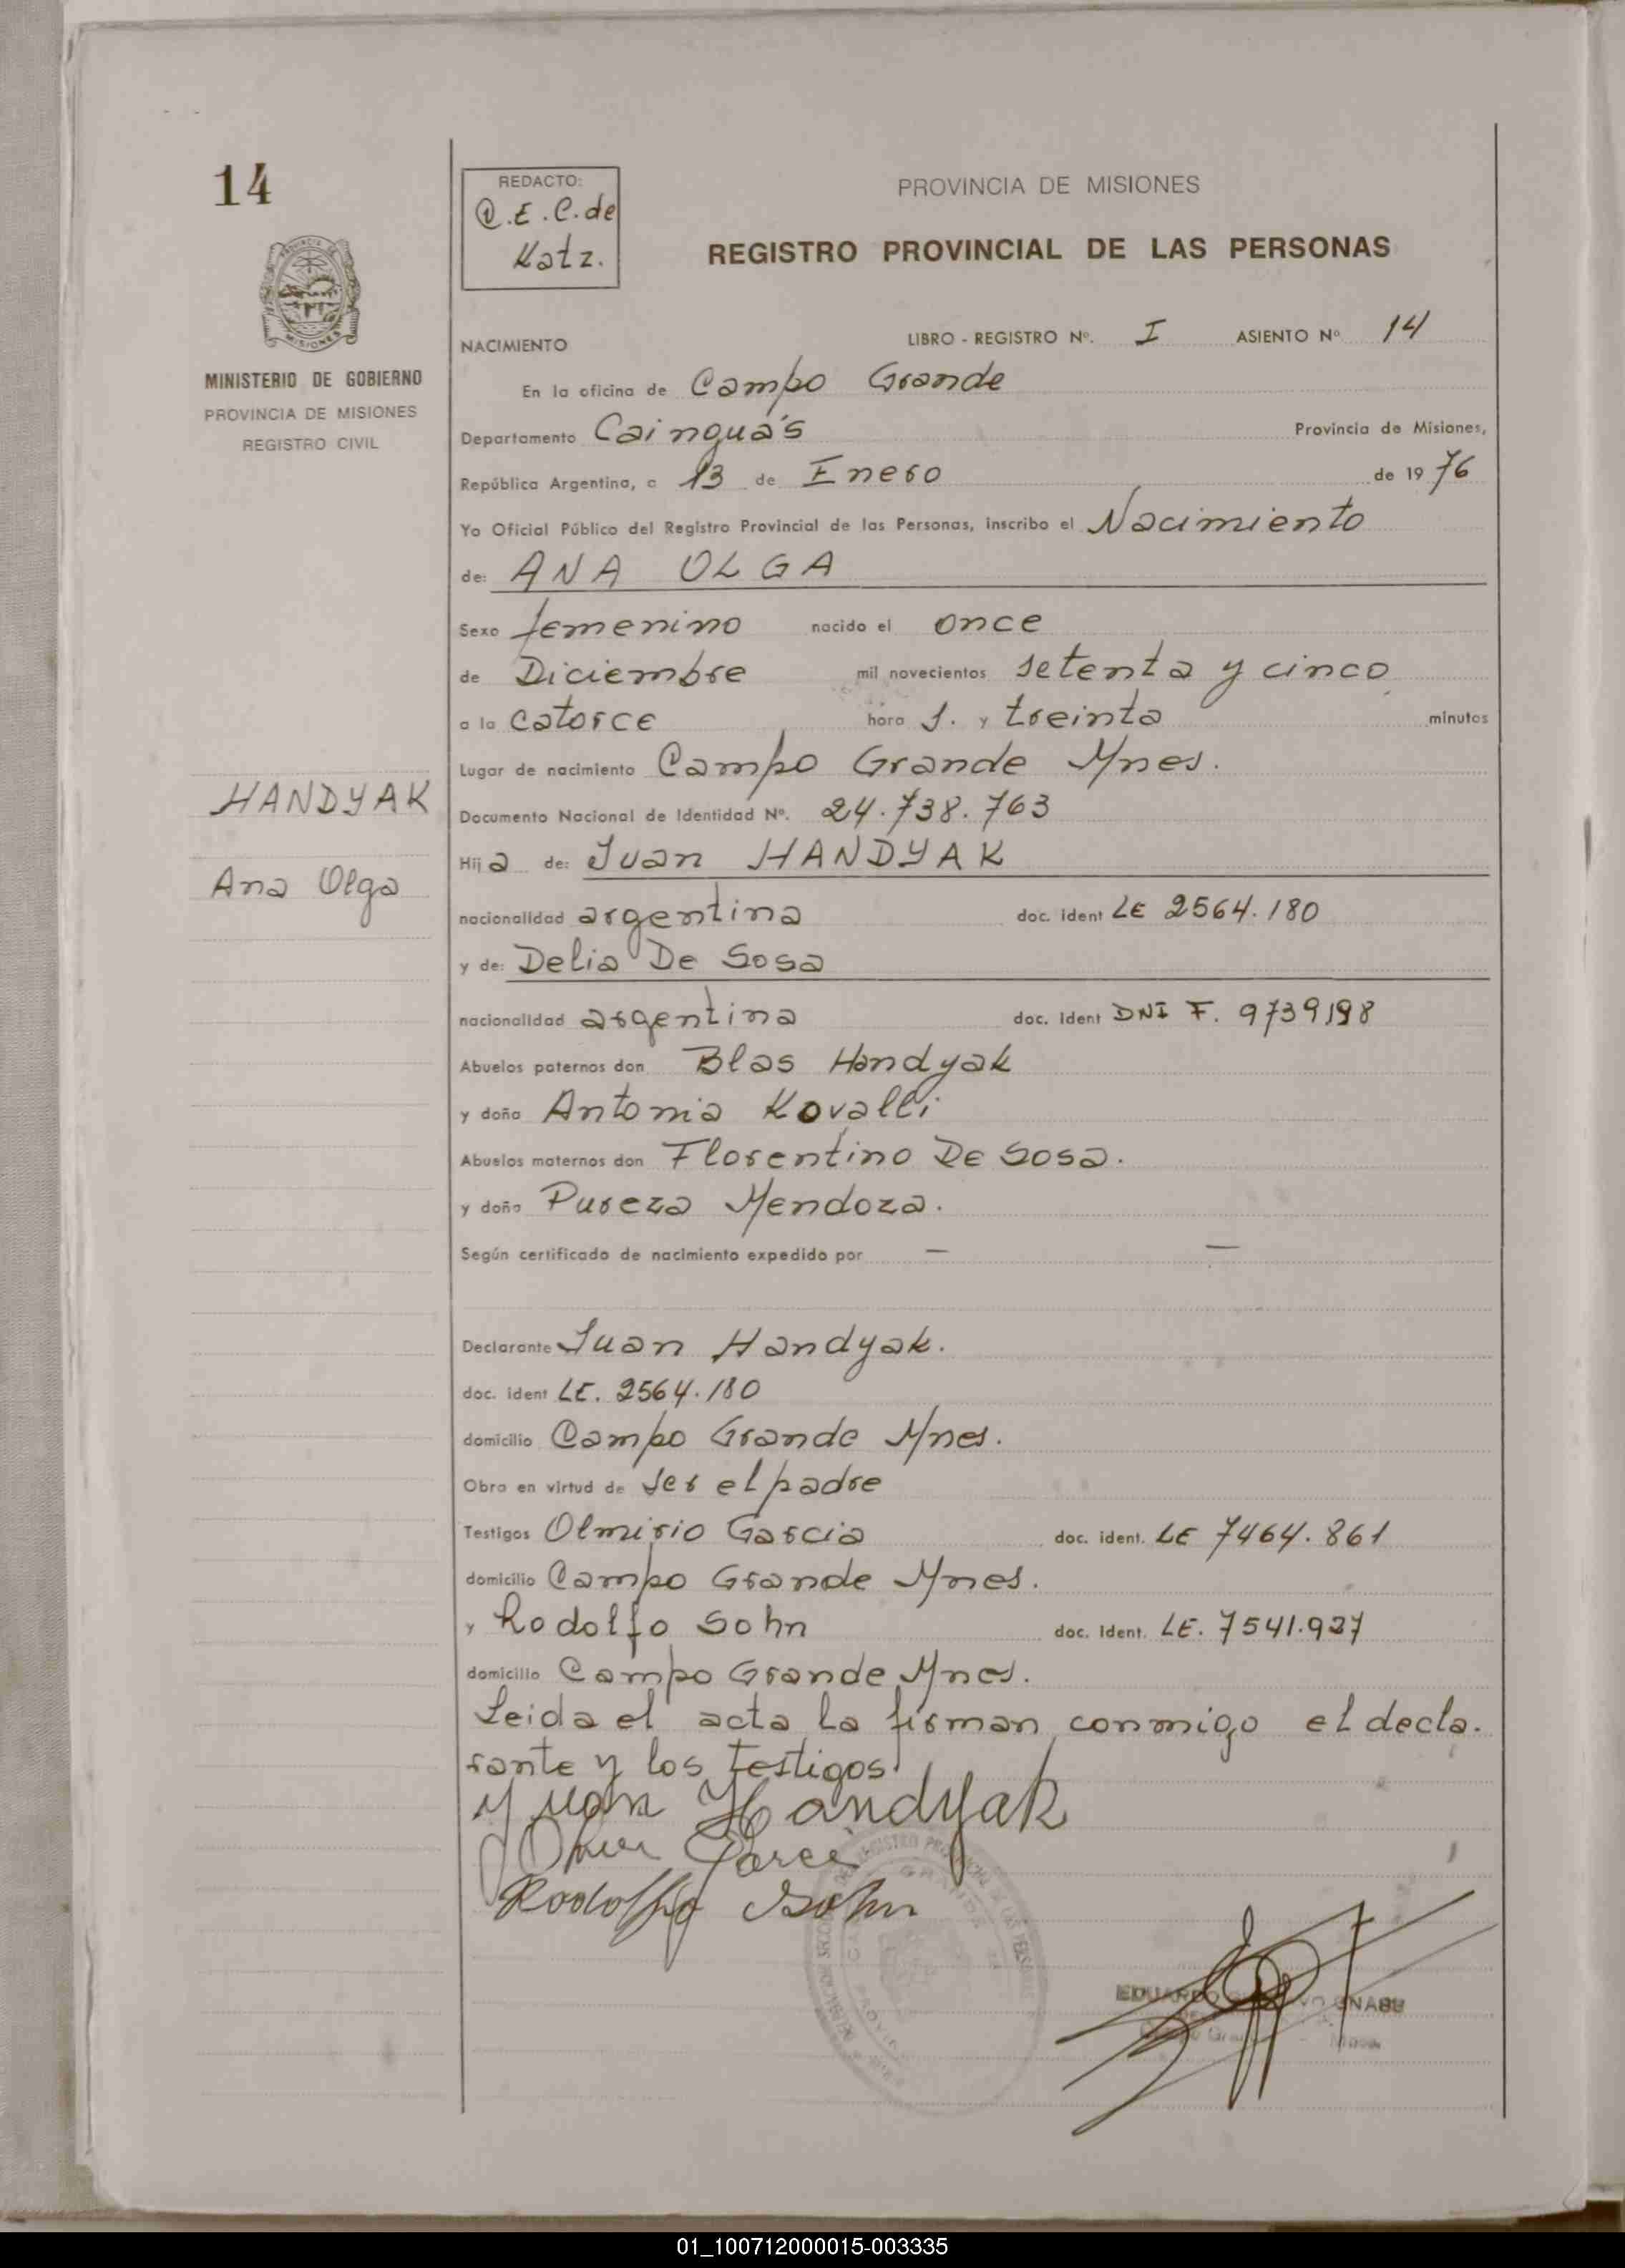 14
REDACTO:
E. C. de
Katz.
PROVINCIA DE MISIONES
REGISTRO PROVINCIAL DE LAS PERSONAS
MISIONES
MINISTERIO DE GOBIERNO
PROVINCIA DE MISIONES
REGISTRO CIVIL
NACIMIENTO LIBRO - REGISTRO Nº. I ASIENTO Nº 14
En la oficina de Campo Grande
Departamento Cainguás Provincia de Misiones,
República Argentina, a 13 de Enero de 19 76
Yo Oficial Público del Registro Provincial de las Personas, inscribo el Nacimiento
de: ANA OLGA
Sexo femenino nacido el once
de Diciembre mil novecientos setenta y cinco
a la catorce hora s. y treinta minutos
Lugar de nacimiento Campo Grande Mnes.
HANDYAK
Documento Nacional de Identidad Nº. 24.738.763
Hij a de: Juan HANDYAK
Ana Olga
nacionalidad argentina doc. ident LE 2564.180
y de: Delia De Sosa
nacionalidad argentina doc. ident DNI F. 9739198
Abuelos paternos don Blas Handyak
y doña Antonia Kovalli
Abuelos maternos don Florentino De Sosa.
y doña Pureza Mendoza.
Según certificado de nacimiento expedido por — —
Declarante Juan Handyak.
doc. ident LE. 2564.180
domicilio Campo Grande Mnes.
Obra en virtud de ser el padre
Testigos Olmirio Garcia doc. ident. LE 7464.861
domicilio Campo Grande Mnes.
y Rodolfo Sohn doc. ident. LE. 7541.937
domicilio Campo Grande Mnes.
Leida el acta la firman conmigo el decla.
rante y los testigos.
Yuan Handyak
Rodolfo Sohn
EDUARDO
01_100712000015-003335